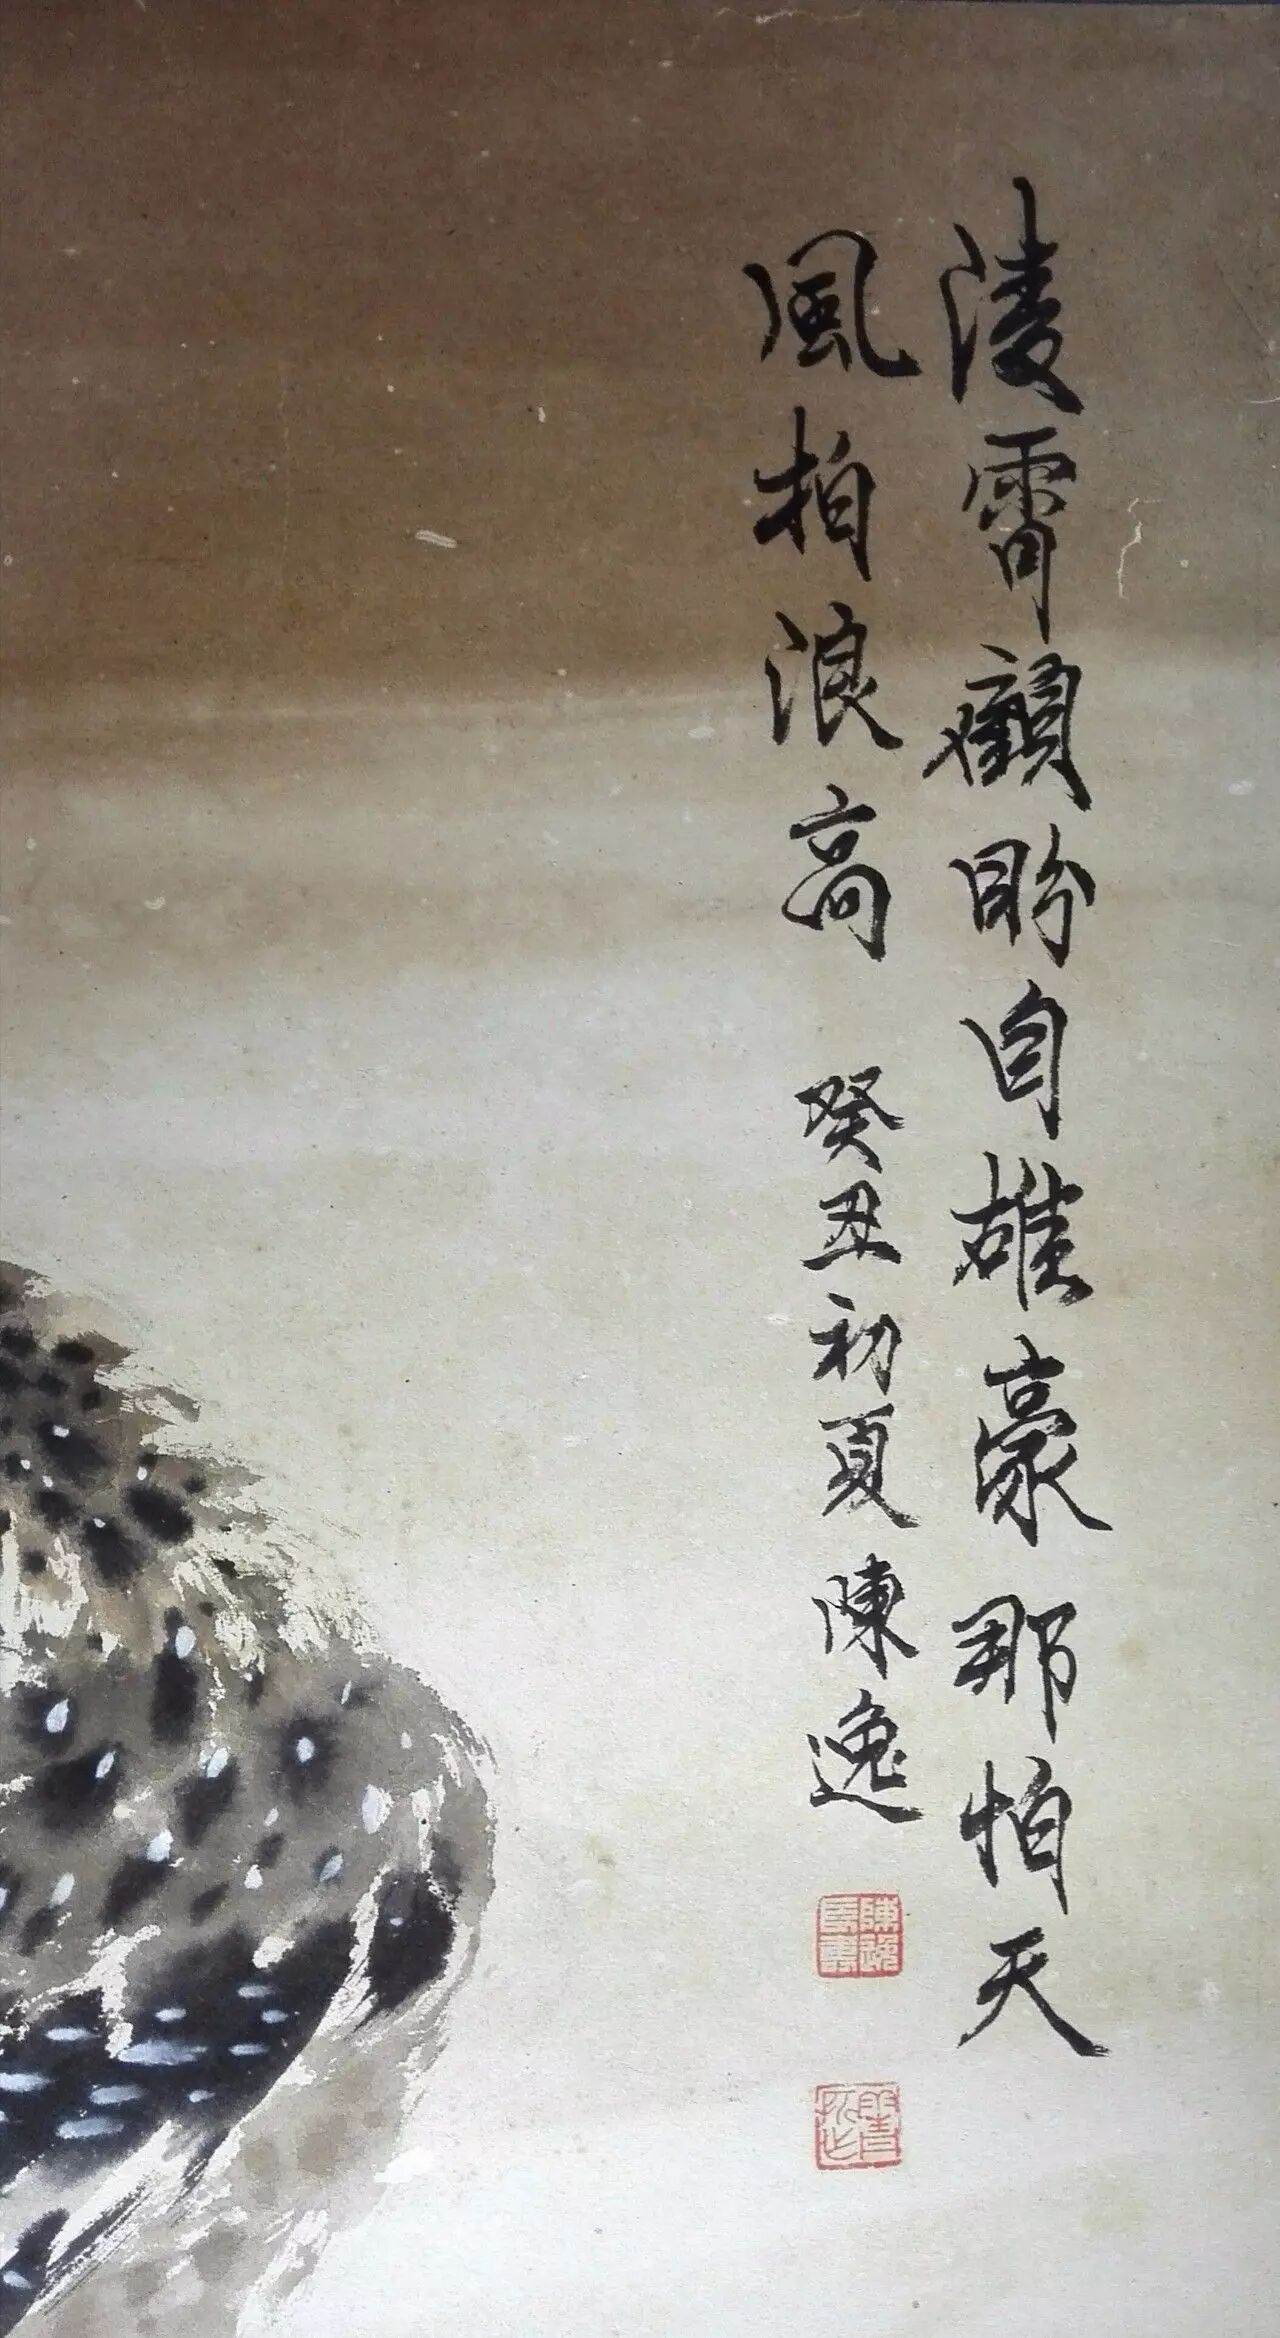 陵霄顧盼自雄豪那怕天
風拍浪高 癸丑初夏 陳逸
陳逸